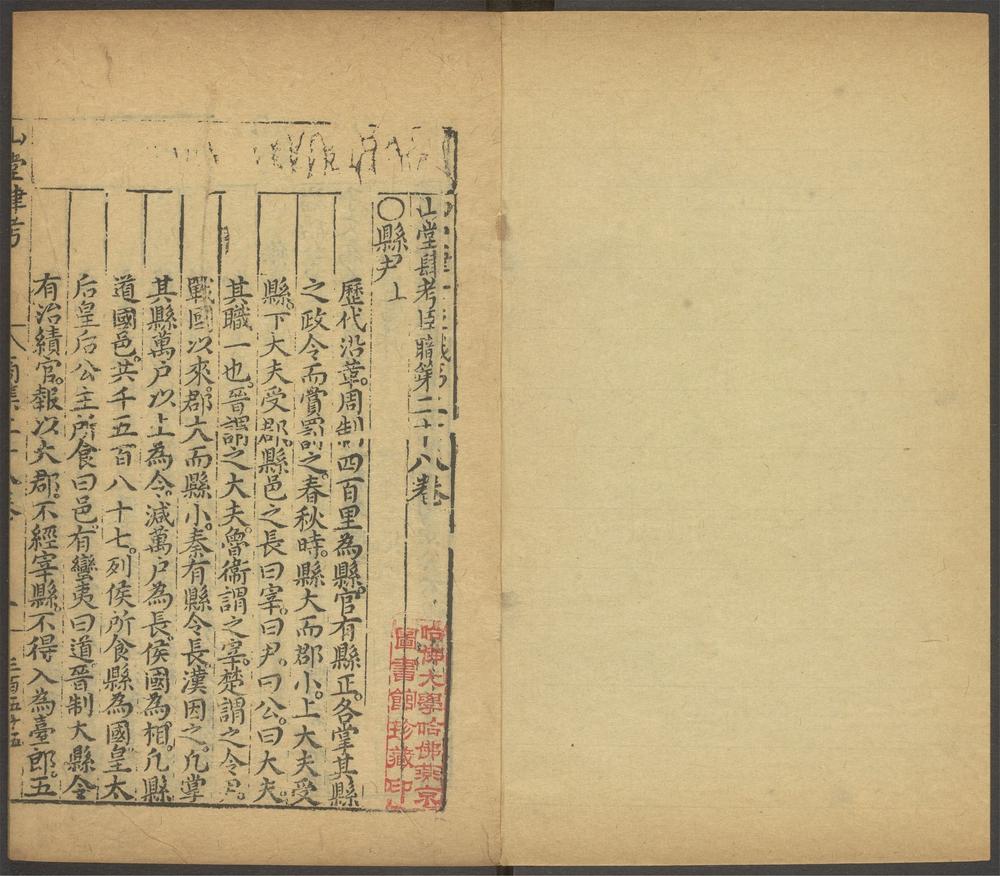 山堂肆考臣職第二十八卷
○縣尹上
歷代沿革。周制四百里為縣。官有縣正。各掌其縣
之政令而賞罰之。春秋時。縣大而郡小。上大夫受
縣。下大夫受郡。縣邑之長曰宰。曰尹。曰公。曰大夫。
其職一也。晉謂之大夫。魯衞謂之宰。楚謂之令尹。
戰國以來。郡大而縣小。秦有縣令長。漢因之。凡掌
其縣萬戶以上為令。減萬戶為長。侯國為相。凡縣
道國邑。共千五百八十七。列侯所食縣為國。皇太
后皇后公主所食曰邑。有蠻夷曰道。晉制大縣令
有治績官。報以大郡。不經宰縣。不得入為臺郎。五
山堂肆考
三百五十五
哈佛大學哈佛燕京
圖書館珍藏印